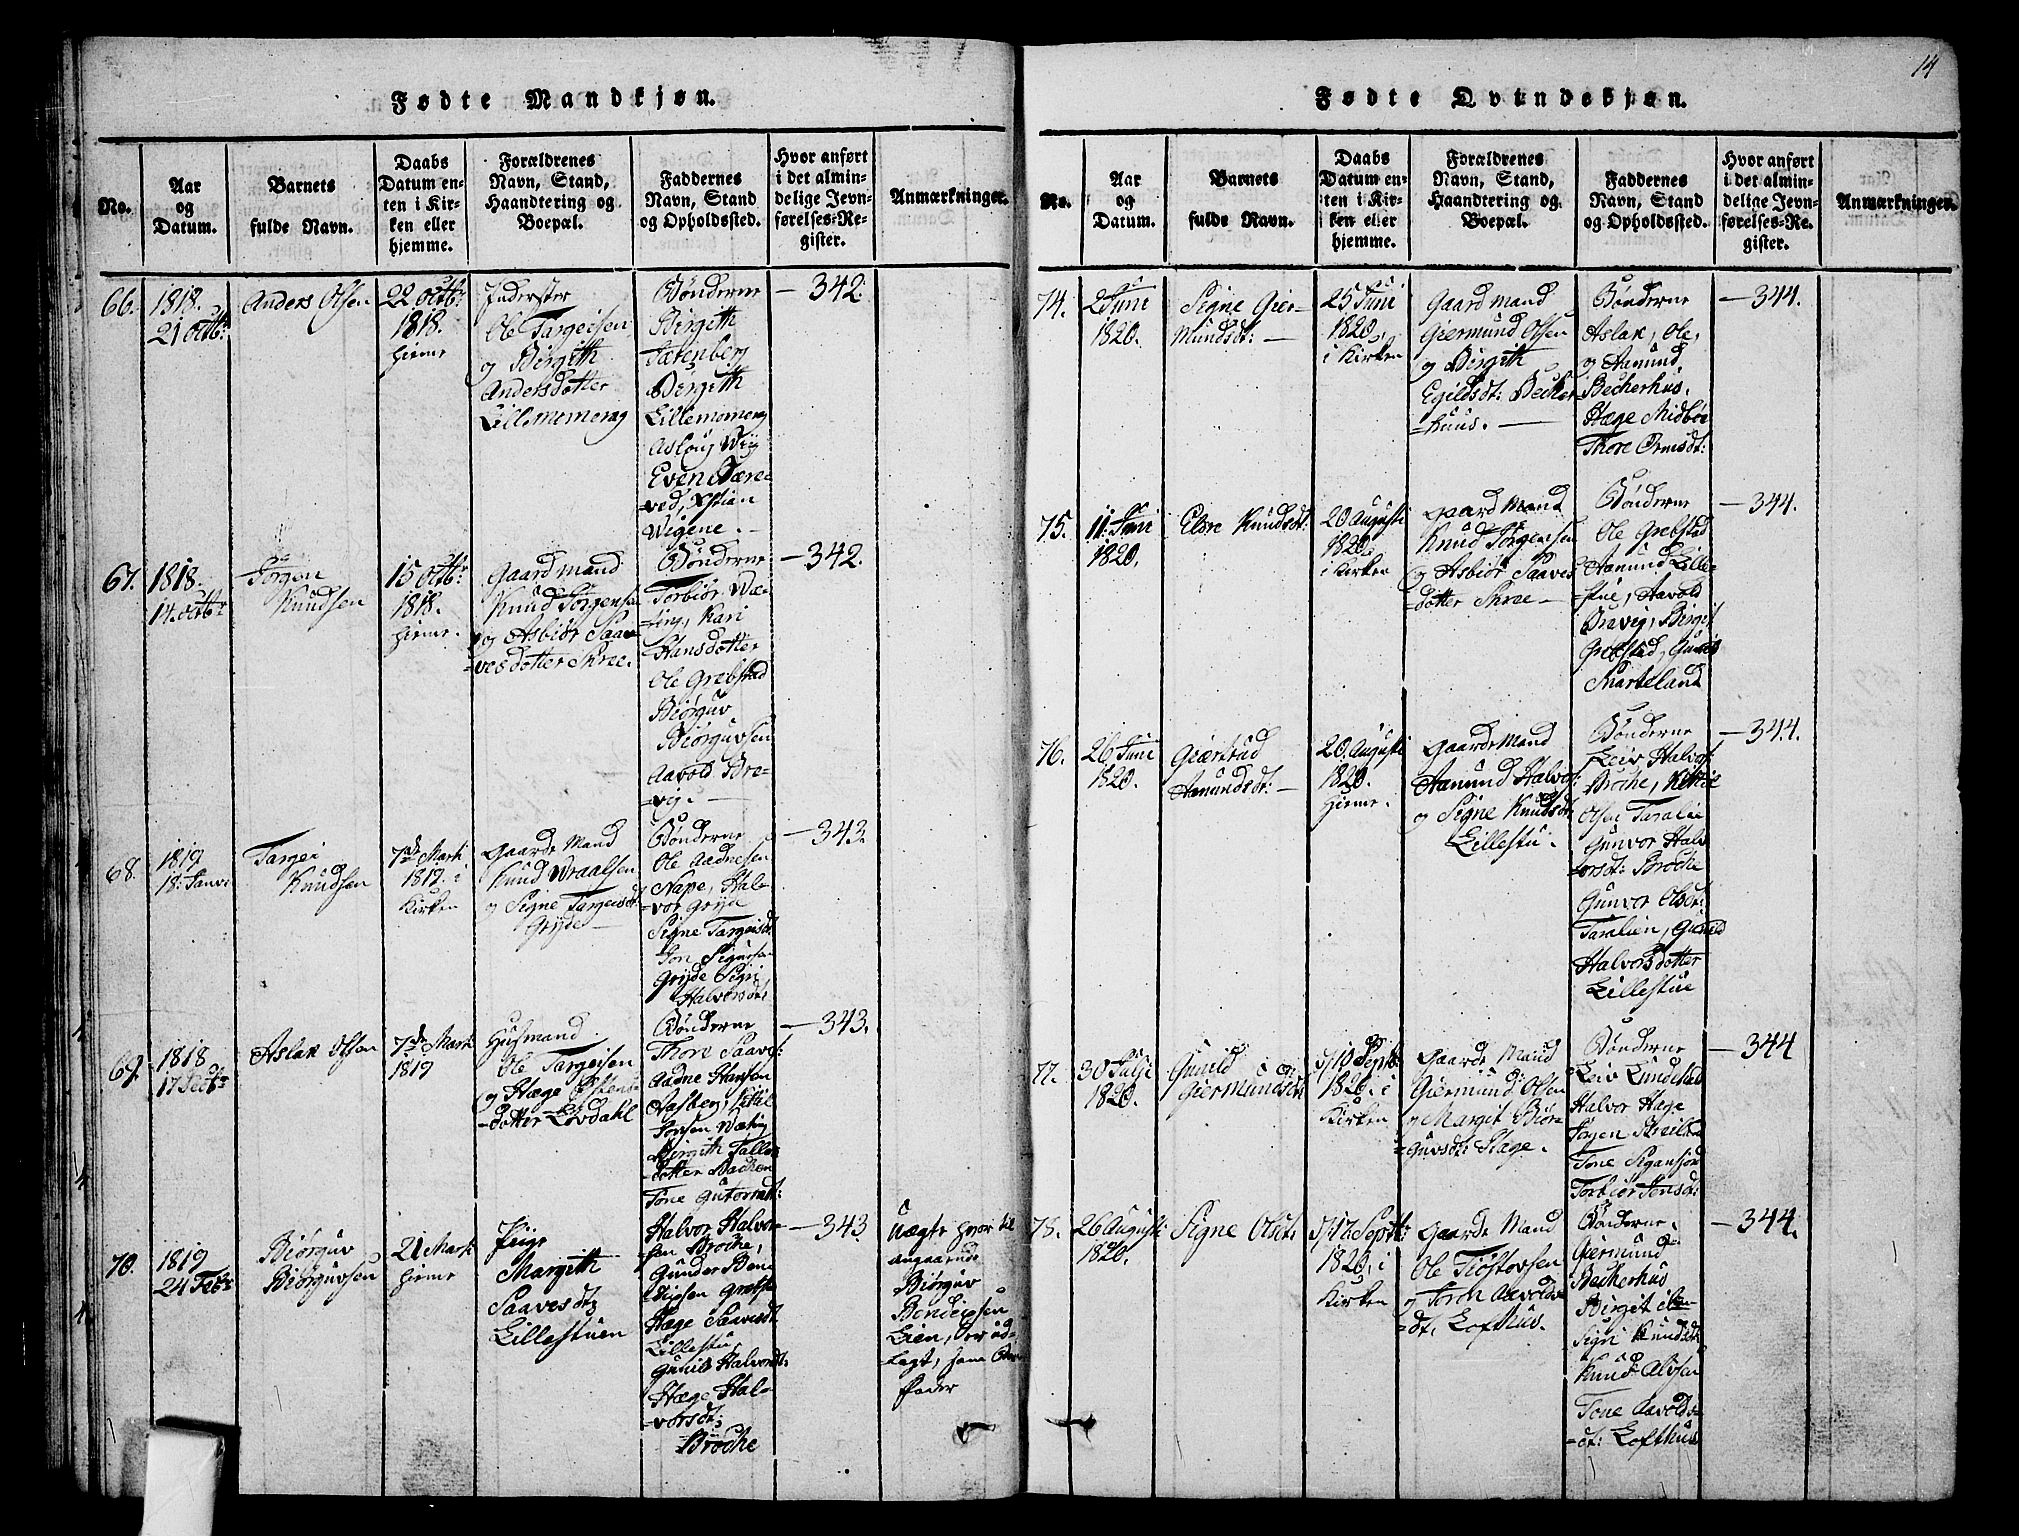 14
Fødte Mandkjøn.
No.
Aar
og
Datum.
Barnets
fulde Navn.
Daabs
Datum en-
ten i Kir-
ken eller
hjemme.
Forældrenes
Navn, Stand,
Haandtering og
Boepæl.
Faddernes
Navn, Stand
og Opholdssted.
Hvor anført
i det almin-
delige Jevn-
førelses-Re-
gister.
Anmærkninger.
66.
1818.
21 octb:
Anders Olsen
22 octb:
1818.
hieme
Inderster
Ole Targeisen
og Birgith
Andersdotter
Lillemomerag
Bønderne
Birgith
Birgith
Lillemomerag
Asloug
Even
ved, Xstian
Wigene. —
— 342.
67.
1818.
14. octb:
Jørgen
Knudsen
15 octb:
1818.
hieme.
Gaardmand
Knud Jørgensen
og Asbiør Saa-
=vesdotter Skree.
Bønderne
Torbiør Væ-
=ting, Kari
Hansdotter
Ole Grebstad
Biørguv
Biørguvsen
Aavold Bre-
=vig. —
— 342.
68.
1819
18: Janv:
Targei
Knudsen
7de Mart
1819. i
Kirken
Gaarde Mand
Knud Wraalsen
og Signe Targeisdt:
Gryde —
Bønderne
Ole Aadnesen
Nape, Hal-
=vor Gryde
Signe Targeisdt:
Gryde Sigri
Halvorsdt:
— 343.
69.
1818
Aslak Olsen
7de Mart
1819
Husmand
Ole Targeisen
og Hæge
=dotter Lövdahl
Bønderne
Thore Saaves:
Aadne Hansen
Aasberg, Kittil
Birgith
=dotter Bachen
Tone Gutormdt:
— 343.
70.
1819
24 Febr:
Biørguv
Biørguvsen
21 Mart
hieme
Pige
Margith
Saavesdtr
Lillestuen
Halvor Halvor-
sen Broche,
Gunder
Hæge Saavesdt:
Lillestu,
Gunild Halvorsdt:
Hæge Hal-
=vorsdt:
Broche
— 343
angaaende
Biørguv
Bendixsen
Lien, er ud-
=lagt, som Barne
fader
Fødte Qvindekjøn.
No.
Aar
og
Datum.
Barnets
fulde Navn.
Daabs
Datum en-
ten i Kir-
ken eller
hjemme.
Forældrenes
Navn, Stand,
Haandtering og
Boepæl.
Faddernes
Navn, Stand
og Opholdssted.
Hvor anført
i det almin-
delige Jevn-
førelses-Re-
gister.
Anmærkninger.
74.
2 Juni
1820.
Signe Gier-
mundsdt: —
25 Juni
1820,
i Kirken
Gaardmand
Giermund Olsen
og Birgith
Egildsdt: Becher
=huus. —
Bønderne
Aslak, Ole,
og Aamund,
Becherhus.
Hæge Midbøe
Thore Ormsdt:
— 344.
75.
11: Juni
1820.
Elsre Knudsdt:
20 Augusti
1820.
i Kirken
Gaard Mand
Knud Jørgensen
og Asbiør Saaves
=dotter Skree —
Bønderne
Ole Grebstad
Aamund Lille-
=stue, Aavold
Bravig, Birgit
Grebstad, Gunild
Marteland
— 344.
76.
26 Juni
1820.
Giertrud
Aamundsdt: —
20. Augusti
1820.
hieme.
Gaarde Mand
Aamund Halvors:
og Signe Knudsdt:
Lillestu.
Bønderne
Leiv Halvors:
Broche, Kittil
Olsen Taralie
Gunvor Halv
=orsdt: Broche
Gunvor Olsdt:
Taralien, Gunild
Halvorsdotter
Lillestue
— 344.
77.
30 Julji
1820.
Gunild
Giermundsdt:
d/10 Septb:
1820. i
Kirken
Gaarde Mand
Giermund Olsen
og Margit Biør-
=guvsdt: Hage.
Bønderne
Leiv Lundestad
Halvor Hage
Jørgen
Tone
Torbiør Jensdt:
— 344
78.
26 Augusti
1820.
Signe Olsdt:
d/17 Septb:
1820, i
Kirken
Gaarde Mand
Ole Tiøstovsen
og Joron Aavolds-
=dt. Lofthus.
Bønderne.
Giermund
Becherhus
Birgit
Sigri Knudsdt:
Knud Alvsen
Tone Aavolds-
=dt: Lofthus
— 344.